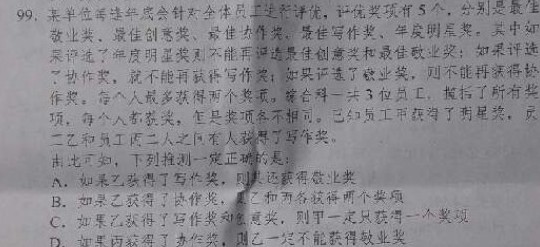 99. 某单位每逢年底会针对全体员工进行评优，评优奖项有5个，分别是最佳
敬业奖、最佳创意奖、最佳协作奖、最佳写作奖、年度明星奖。其中如
果评选了年度明星奖则不能再评选最佳创意奖和最佳敬业奖；如果评选
了协作奖，就不能再获得写作奖；如果评选了敬业奖，则不能再获得协
作奖。每个人最多获得两个奖项。综合科一共3位员工，揽括了所有奖
项，每个人都获奖，但是奖项各不相同。已知员工甲获得了明星奖，员
工乙和员工丙二人之间有人获得了写作奖。
由此可知，下列推测一定正确的是：
A．如果乙获得了写作奖，则其还获得敬业奖
B．如果乙获得了协作奖，则乙和丙各获得两个奖项
C．如果乙获得了写作奖和创意奖，则甲一定只获得一个奖项
D．如果丙获得了协作奖，则乙一定不能获得敬业奖